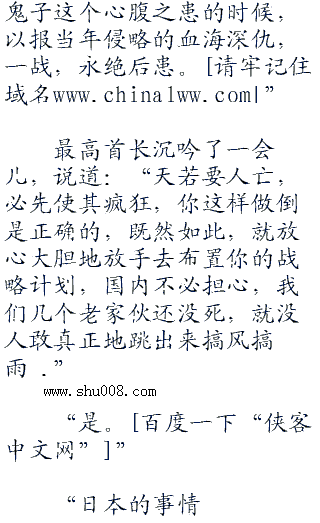 鬼子这个心腹之患的时候，
以报当年侵略的血海深仇，
一战，永绝后患。[请牢记住
域名www.china1ww.com|”
最高首长沉吟了一会
儿，说道：“天若要人亡，
必先使其疯狂，你这样做倒
是正确的，既然如此，就放
心大胆地放手去布置你的战
略计划，国内不必担心，我
们几个老家伙还没死，就没
人敢真正地跳出来搞风搞
雨 .”
www.shu008.com
“是。[百度一下“侠客
中文网”]”
“日本的事情